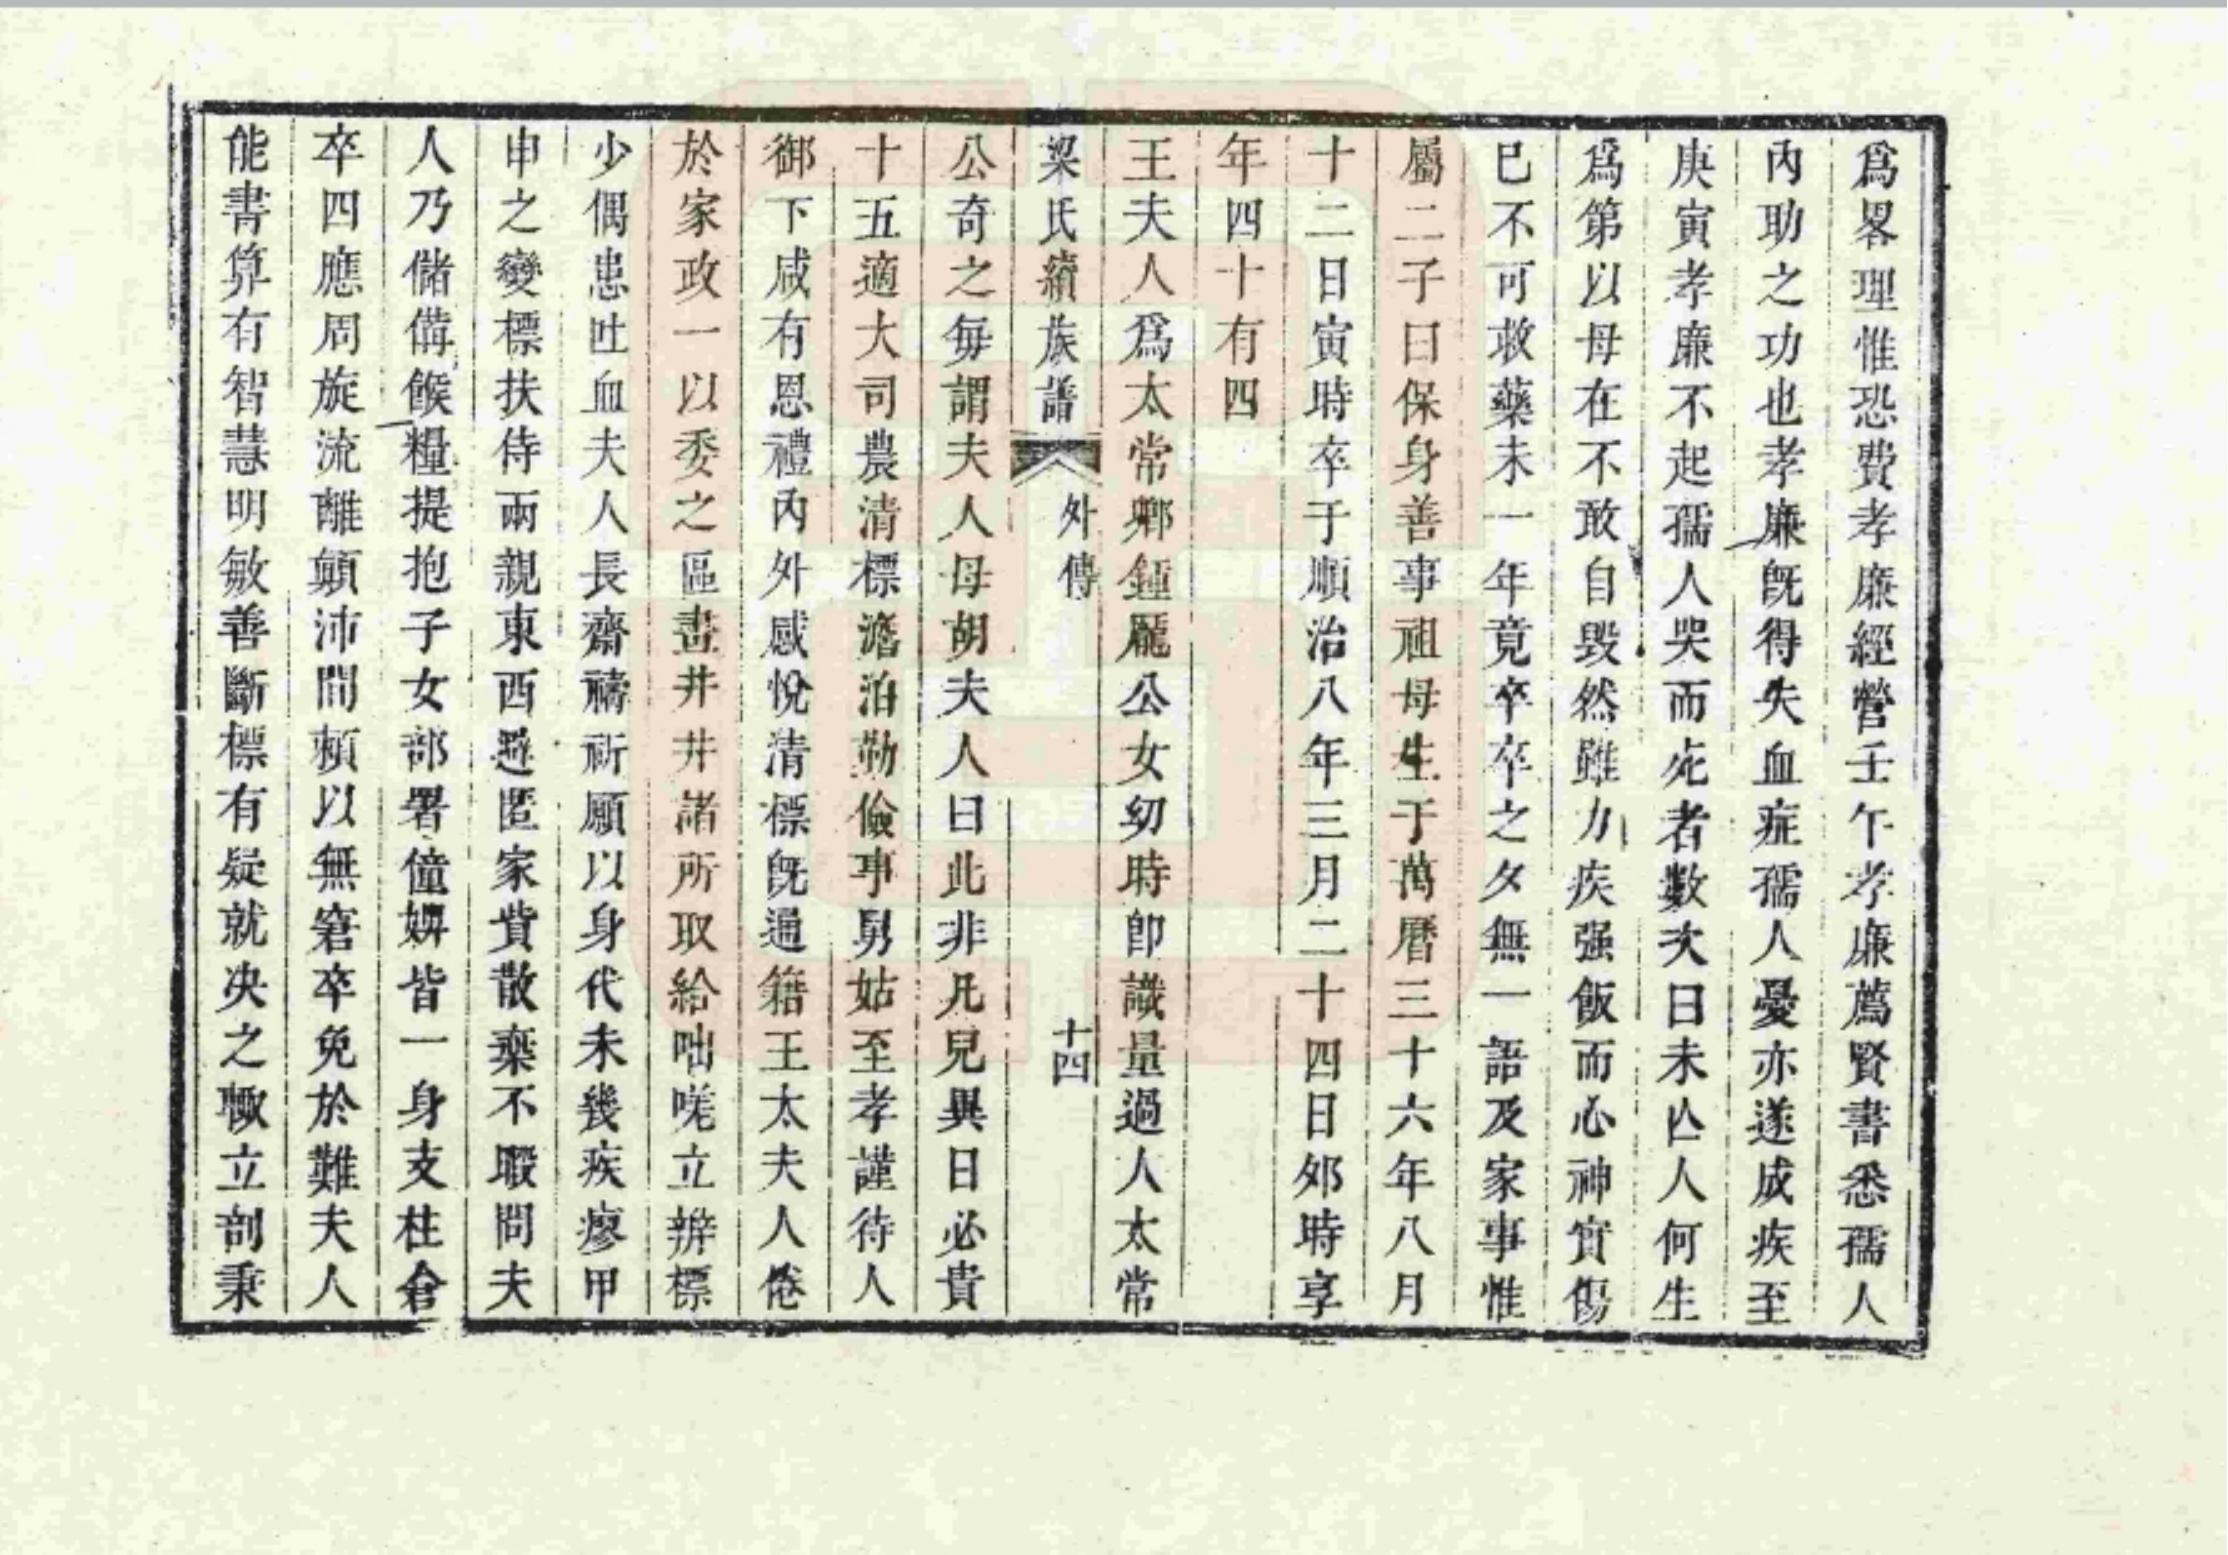 爲畧理惟恐費孝廉經營壬午孝廉薦賢書悉孺人
內助之功也孝廉旣得失血症孺人憂亦遂成疾至
庚寅孝廉不起孺人哭而死者數次曰未亾人何生
爲第以母在不敢自毀然雖力疾强飯而心神實傷
已不可救藥未一年竟卒卒之夕無一語及家事惟
屬二子曰保身善事祖母生于萬曆三十六年八月
十二日寅時卒于順治八年三月二十四日夘時享
年四十有四
王夫人爲太常卿鍾龎公女幼時卽識量過人太常
梁氏續族譜 外傳 十四
公奇之每謂夫人母胡夫人曰此非凡兒異日必貴
十五適大司農清標澹泊勤儉事舅姑至孝謹待人
御下咸有恩禮內外感悅清標旣通籍王太夫人倦
於家政一以委之區畫井井諸所取給咄嗟立辨標
少偶患吐血夫人長齋禱祈願以身代未幾疾瘳甲
申之變標扶侍兩親東西避匿家貲散棄不暇問夫
人乃儲偫餱糧提抱子女部署僮婢皆一身支柱倉
卒四應周旋流離顚沛間頼以無窘卒免於難夫人
能書算有智慧明敏善斷標有疑就决之輙立剖秉